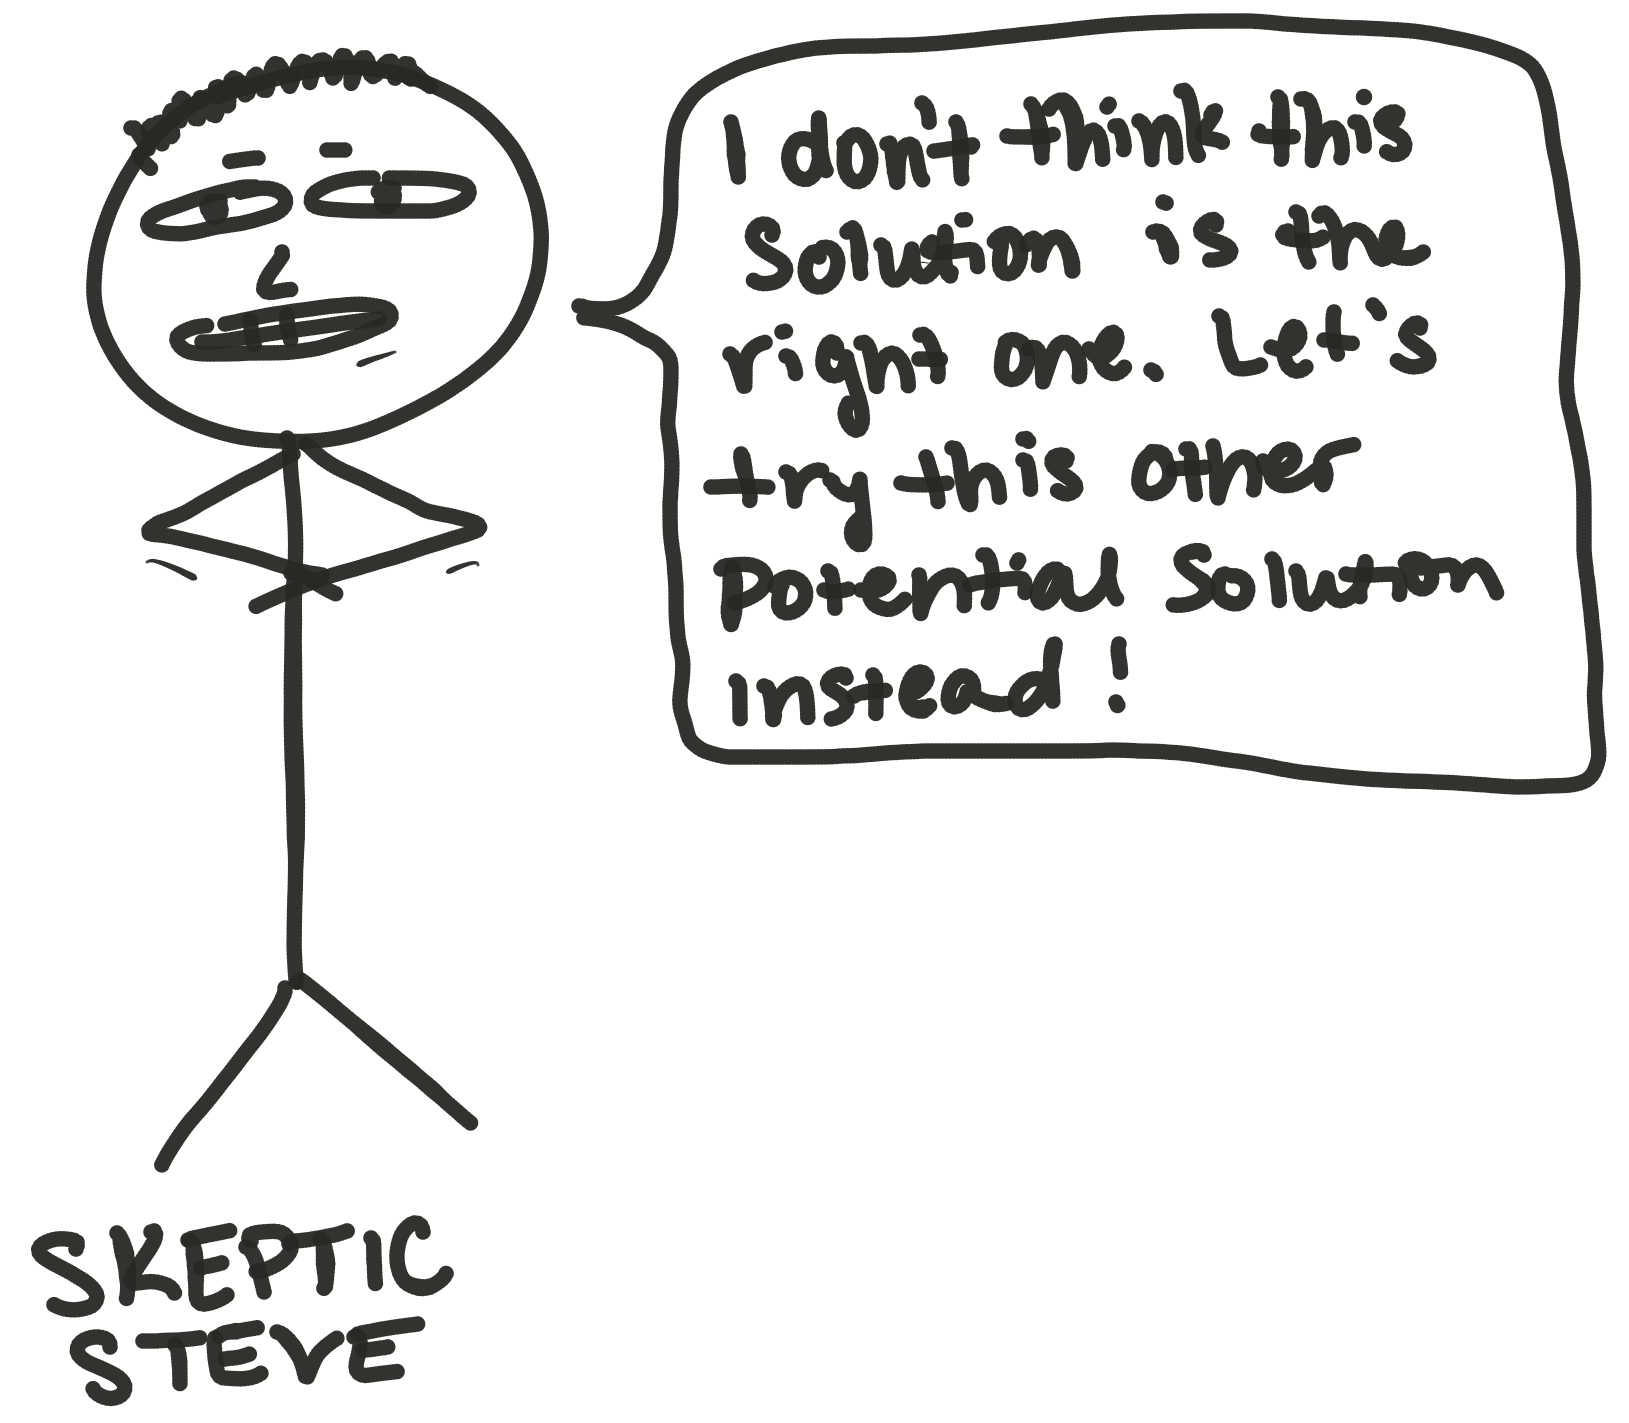 I don't think this
Solution is the
right one. Let's
try this other
Potential Solution
instead!
SKEPTIC
STEVE